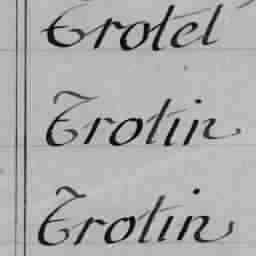 Trotel
Trotin
Trotin